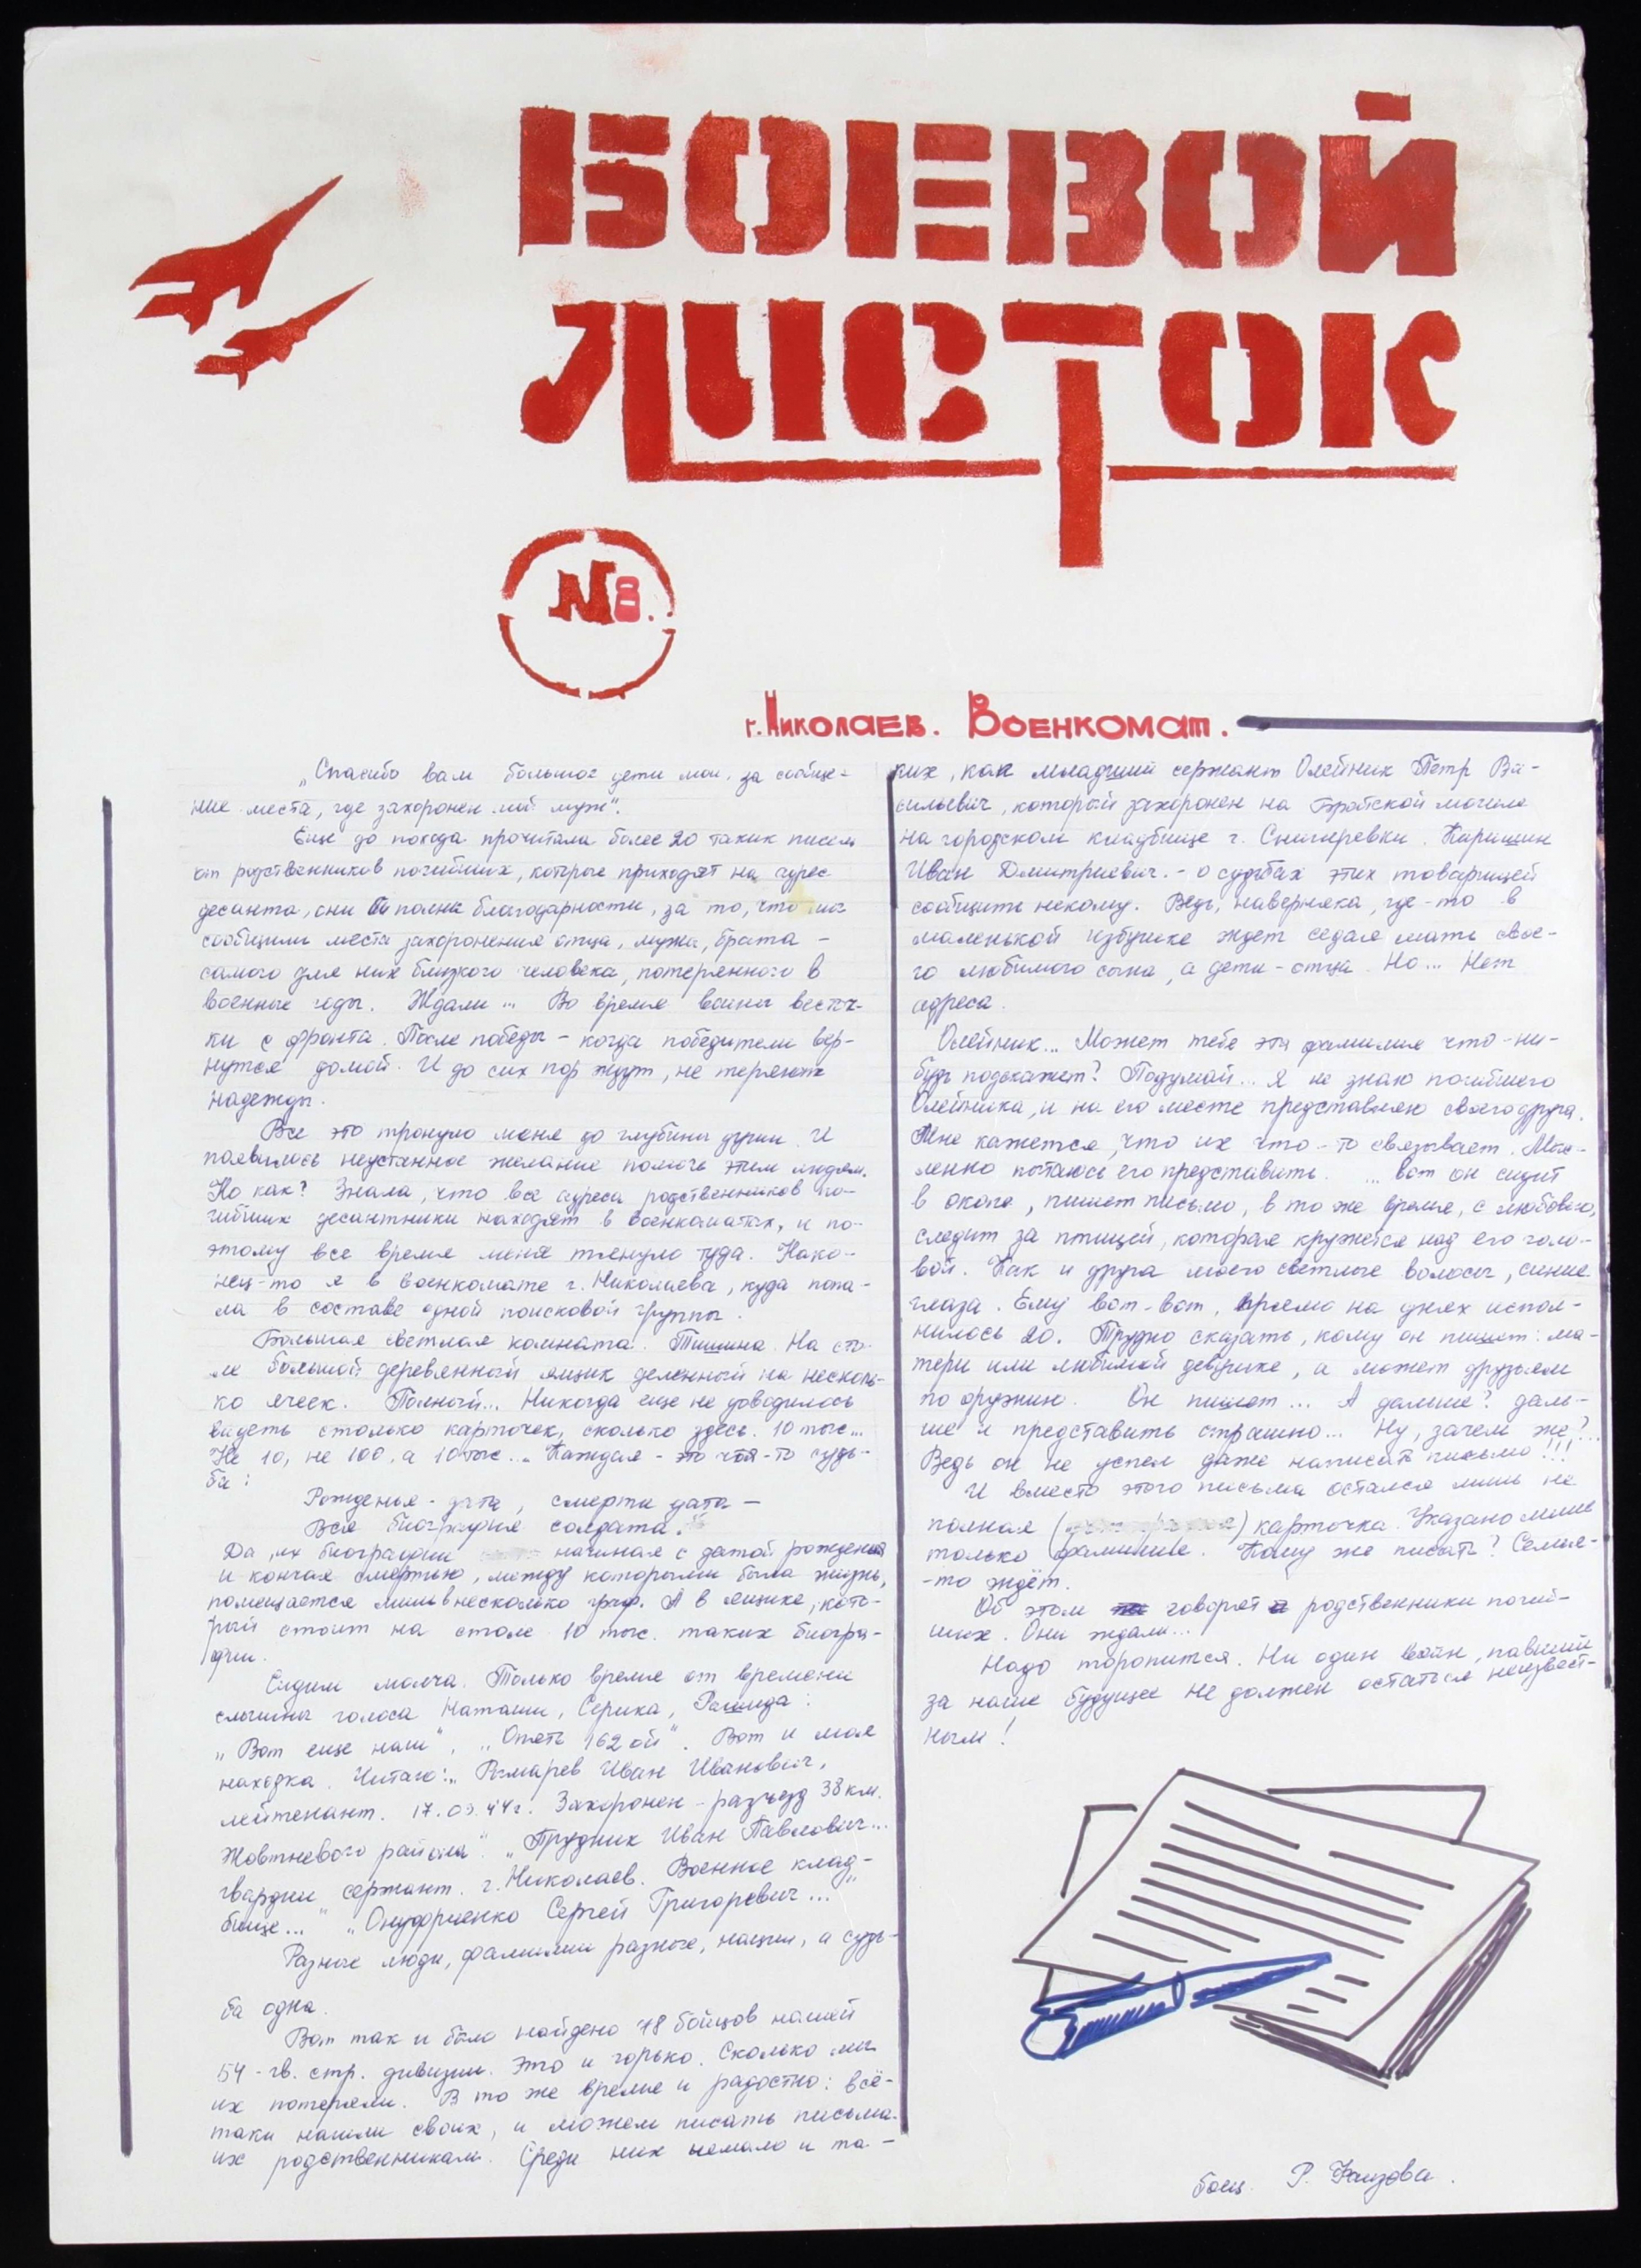 БОЕВОЙ
ЛИСТОК
N8.
г. Николаев. Военкомат.
„Спасибо вам большое дети мои, за сообще-
ние места, где захоронен мой муж".
Еще до похода прочитала более 20 таких писем
от родственников погибших, которые приходят на адрес
десанта, они полны благодарности, за то, что мы
сообщили места захоронения отца, мужа, брата -
самого для них близкого человека, потерянного в
военные годы. Ждали... Во время войны весточ-
ки с фронта. После победы - когда победители вер-
нутся домой. И до сих пор ждут, не теряют
надежды.
Все это тронуло меня до глубины души. И
появилось неустанное желание помочь этим людям.
Но как? Знала, что все адреса родственников по-
гибших десантники находят в военкоматах, и по-
этому все время меня тянуло туда. Нако-
нец-то я в военкомате г. Николаева, куда попа-
ла в составе одной поисковой группы.
Большая светлая комната. Тишина. На сто-
ле большой деревянный ящик деленный на несколь-
ко ячеек. Полный... Никогда еще не доводилось
видеть столько карточек, сколько здесь. 10 тыс...
Не 10, не 100, а 10 тыс... Каждая - это чья-то судь-
ба:
Рожденья - дата, смерти дата -
Вся биография солдата.
Да, их биографии начиная с датой рождения
и кончая смертью, между которыми была жизнь,
помещается лишь в несколько граф. А в ящике, кото-
рый стоит на столе 10 тыс. таких биогра-
фии.
Сидим молча. Только время от времени
слышны голоса Наташи, Серика, Рашида:
„Вот еще наш", „Опять 162 ой". Вот и моя
находка. Читаю: „Рымарев Иван Иванович,
лейтенант. 17.03.44г. Захоронен - разъезд 38 км.
Жовтневого района". „Прудник Иван Павлович...
гвардии сержант. г. Николаев. Военное клад-
бище..." „Онуфриенко Сергей Григорьевич..."
Разные люди, фамилии разные, нации, а судь-
ба одна.
Вот так и было найдено 18 бойцов нашей
54 - гв. стр. дивизии. Это и горько. Сколько мы
их потеряли. В то же время и радостно: всё-
таки нашли своих, и можем писать письма
их родственникам. Среди них немало и та-
ких, как младший сержант Олейник Петр Ва-
сильевич, который захоронен на Братской могиле
на городском кладбище г. Снигиревки.
Иван Дмитриевич. - о судьбах этих товарищей
сообщить некому. Ведь, наверняка, где-то в
маленькой избушке ждет седая мать свое-
го любимого сына, а дети - отца. Но... Нет
адреса.
Олейник... Может тебе эта фамилия что-ни-
будь подскажет? Подумай... Я не знаю погибшего
Олейника, и на его месте представляю своего друга.
Мне кажется, что их что-то связывает. Мыс-
ленно пытаюсь его представить. ... вот он сидит
в окопе, пишет письмо, в то же время, с любовью,
следит за птицей, которая кружется над его голо-
вой. Как и друга моего светлые волосы, синие
глаза. Ему вот-вот, прямо на днях испол-
нилось 20. Трудно сказать, кому он пишет: ма-
тери или любимой девушке, а может друзьям
по оружию. Он пишет... А дальше? Даль-
ше и представить страшно... Ну, зачем же?..
Ведь он не успел даже написать письмо!!!
И вместо этого письма остался лишь не
полная карточка. Указано лишь
только фамилие. Кому же писать? Семья-
-то ждёт.
Об этом говорят родственники погиб-
ших. Они ждали...
Надо торопится. Ни один воин, павший
за наше будущее не должен остаться неизвест-
ным!
боец. Р. Фаизова.